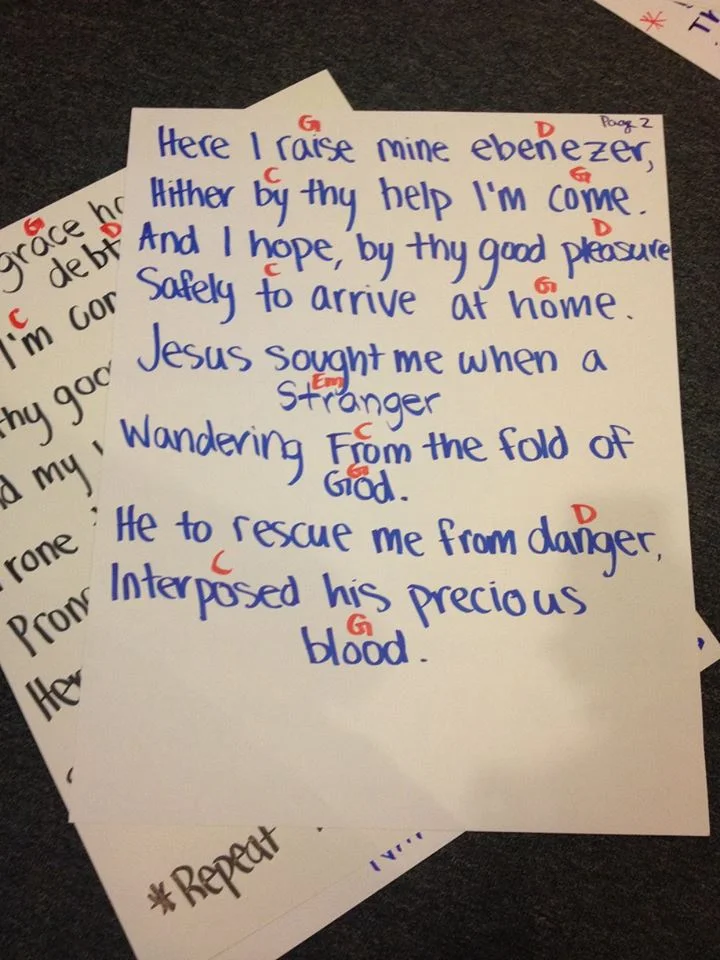 Page 2
G D
Here I raise mine ebenezer,
C G
Hither by thy help I'm come.
D
And I hope, by thy good pleasure
C G
Safely to arrive at home.
Jesus sought me when a
Em
Stranger
C
Wandering From the fold of
G
God.
D
He to rescue me from danger,
C
Interposed his precious
G
blood.
G
grace
D
debt
C
I'm
thy
my
Prone
*Repeat
*